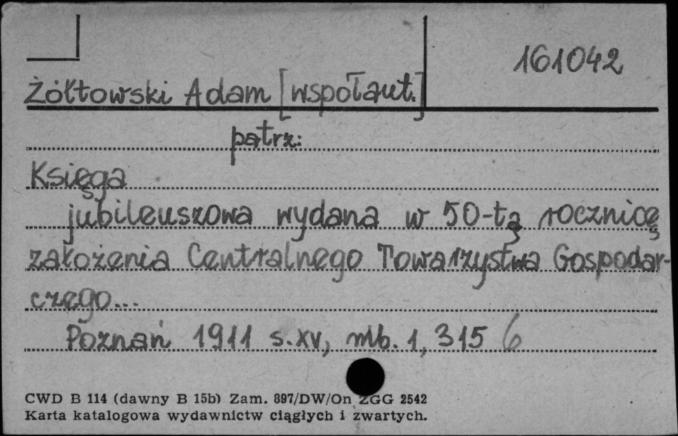 161042
Żółtowski Adam [współaut.]
patrz:
Księga
jubileuszowa wydana w 50-tą rocznicę
założenia Centralnego Towarzystwa Gospodar-
czego...
Poznań 1911 s.XV, nlb. 1, 315 6
CWD B 114 (dawny B 15b) Zam. 897/DW/On ZGG 2542
Karta katalogowa wydawnictw ciągłych i zwartych.